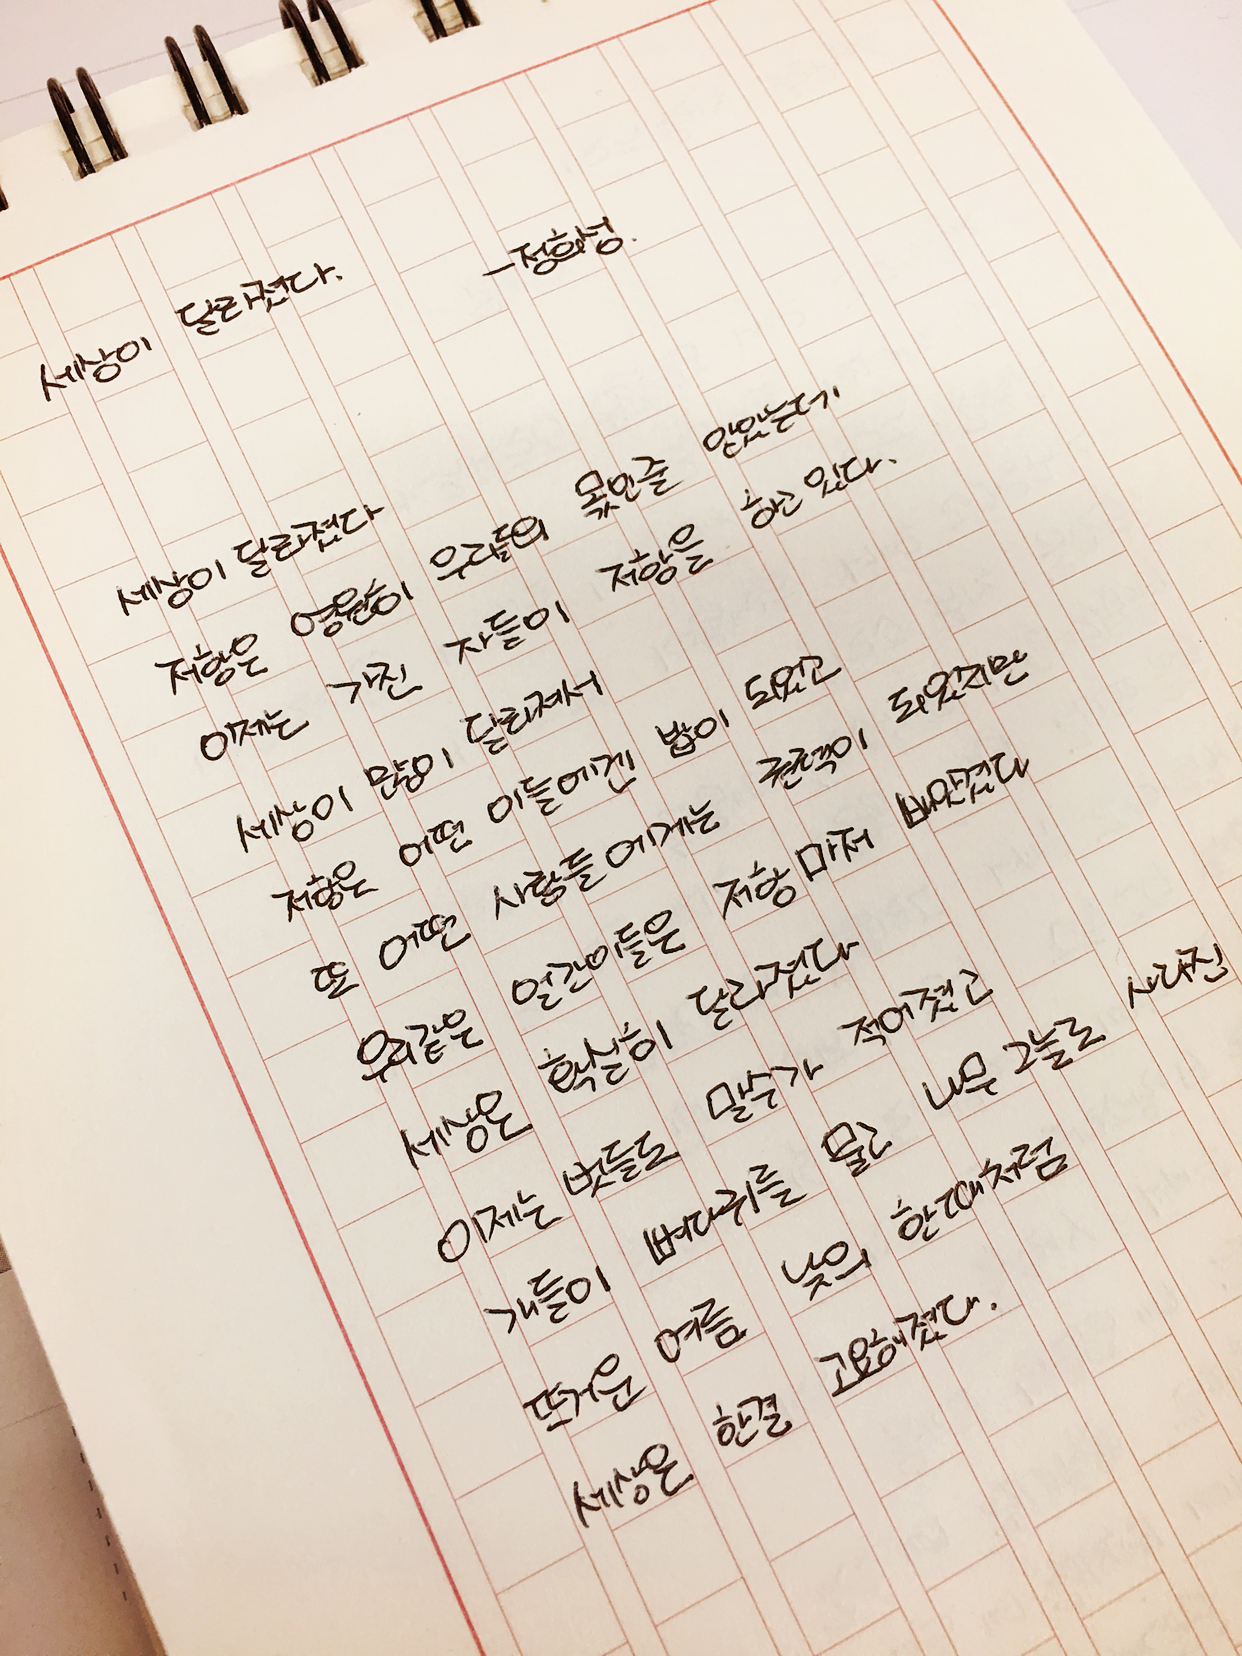 세상이 달라졌다. -정희성.
세상이 달라졌다
저항은 영원히 우리들의 몫인줄 알았는데
이제는 가진 자들이 저항을 하고 있다.
세상이 많이 달라져서
저항은 어떤 이들에겐 밥이 되었고
또 어떤 사람들에게는 권력이 되었지만
우리같은 얼간이들은 저항마저 빼앗겼다
세상은 확실히 달라졌다
이제는 벗들도 말수가 적어졌고
개들이 뼈다귀를 물고 나무 그늘로 사라진
뜨거운 여름 낮의 한때처럼
세상은 한결 고요해졌다.